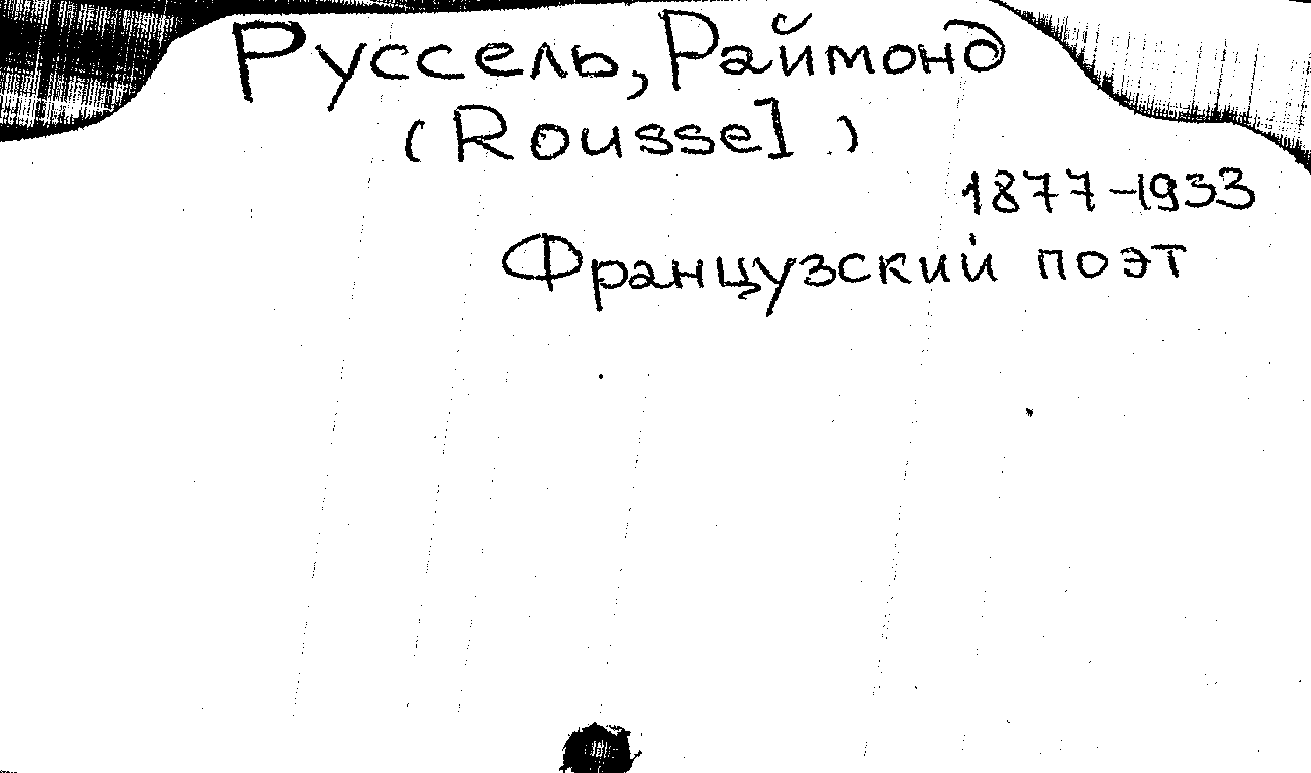 Руссель, Раймонд
(Roussel)
1877-1933
Французский поэт